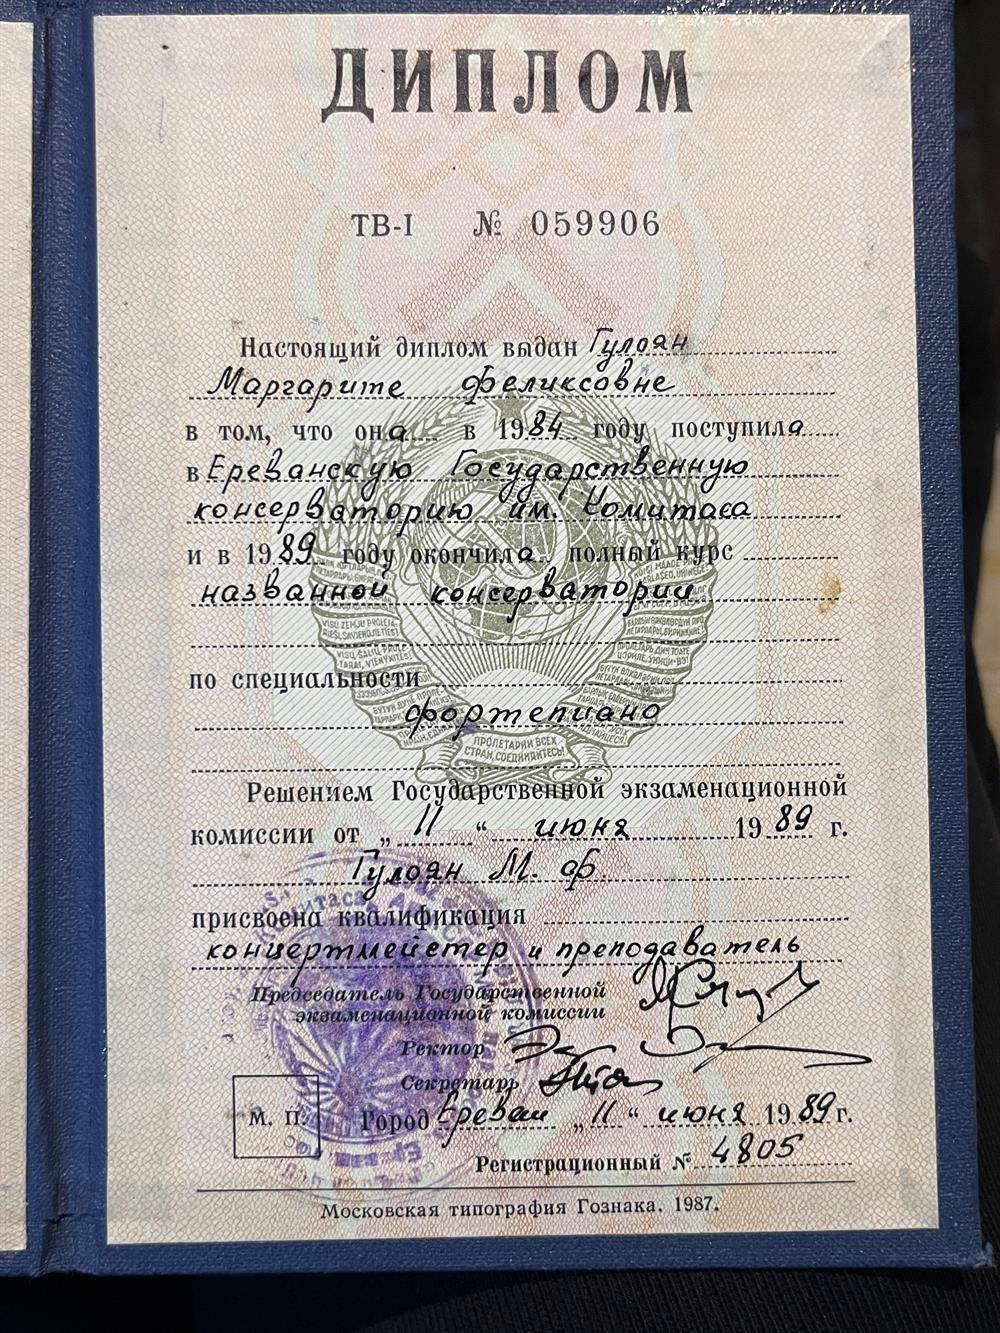 ДИПЛОМ
ТВ-I № 059906
Настоящий диплом выдан Гулоян
Маргарите Феликсовне
в том, что она в 1984 году поступила
в Ереванскую Государственную
консерваторию им. Комитаса
и в 1989 году окончила полный курс
названной консерватории
по специальности
фортепиано
ПРОЛЕТАРИИ ВСЕХ
СТРАН, СОЕДИНЯЙТЕСЬ!
Решением Государственной экзаменационной
комиссии от „11“ июня 1989 г.
Гулоян М. Ф.
присвоена квалификация
концертмейстер и преподаватель
Председатель Государственной
экзаменационной комиссии
Ректор
Секретарь
М. П. Город Ереван „11“ июня 1989 г.
Регистрационный № 4805
Московская типография Гознака. 1987.